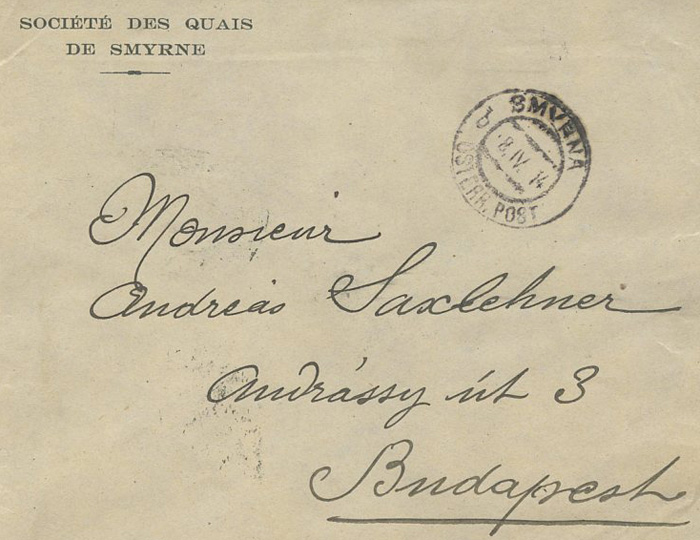 SOCIÉTÉ DES QUAIS
DE SMYRNE
SMYRNA
b
8.IV.14
ÖSTERR. POST
Monsieur
Andreas Saxlehner
Andrássy út 3
Budapest